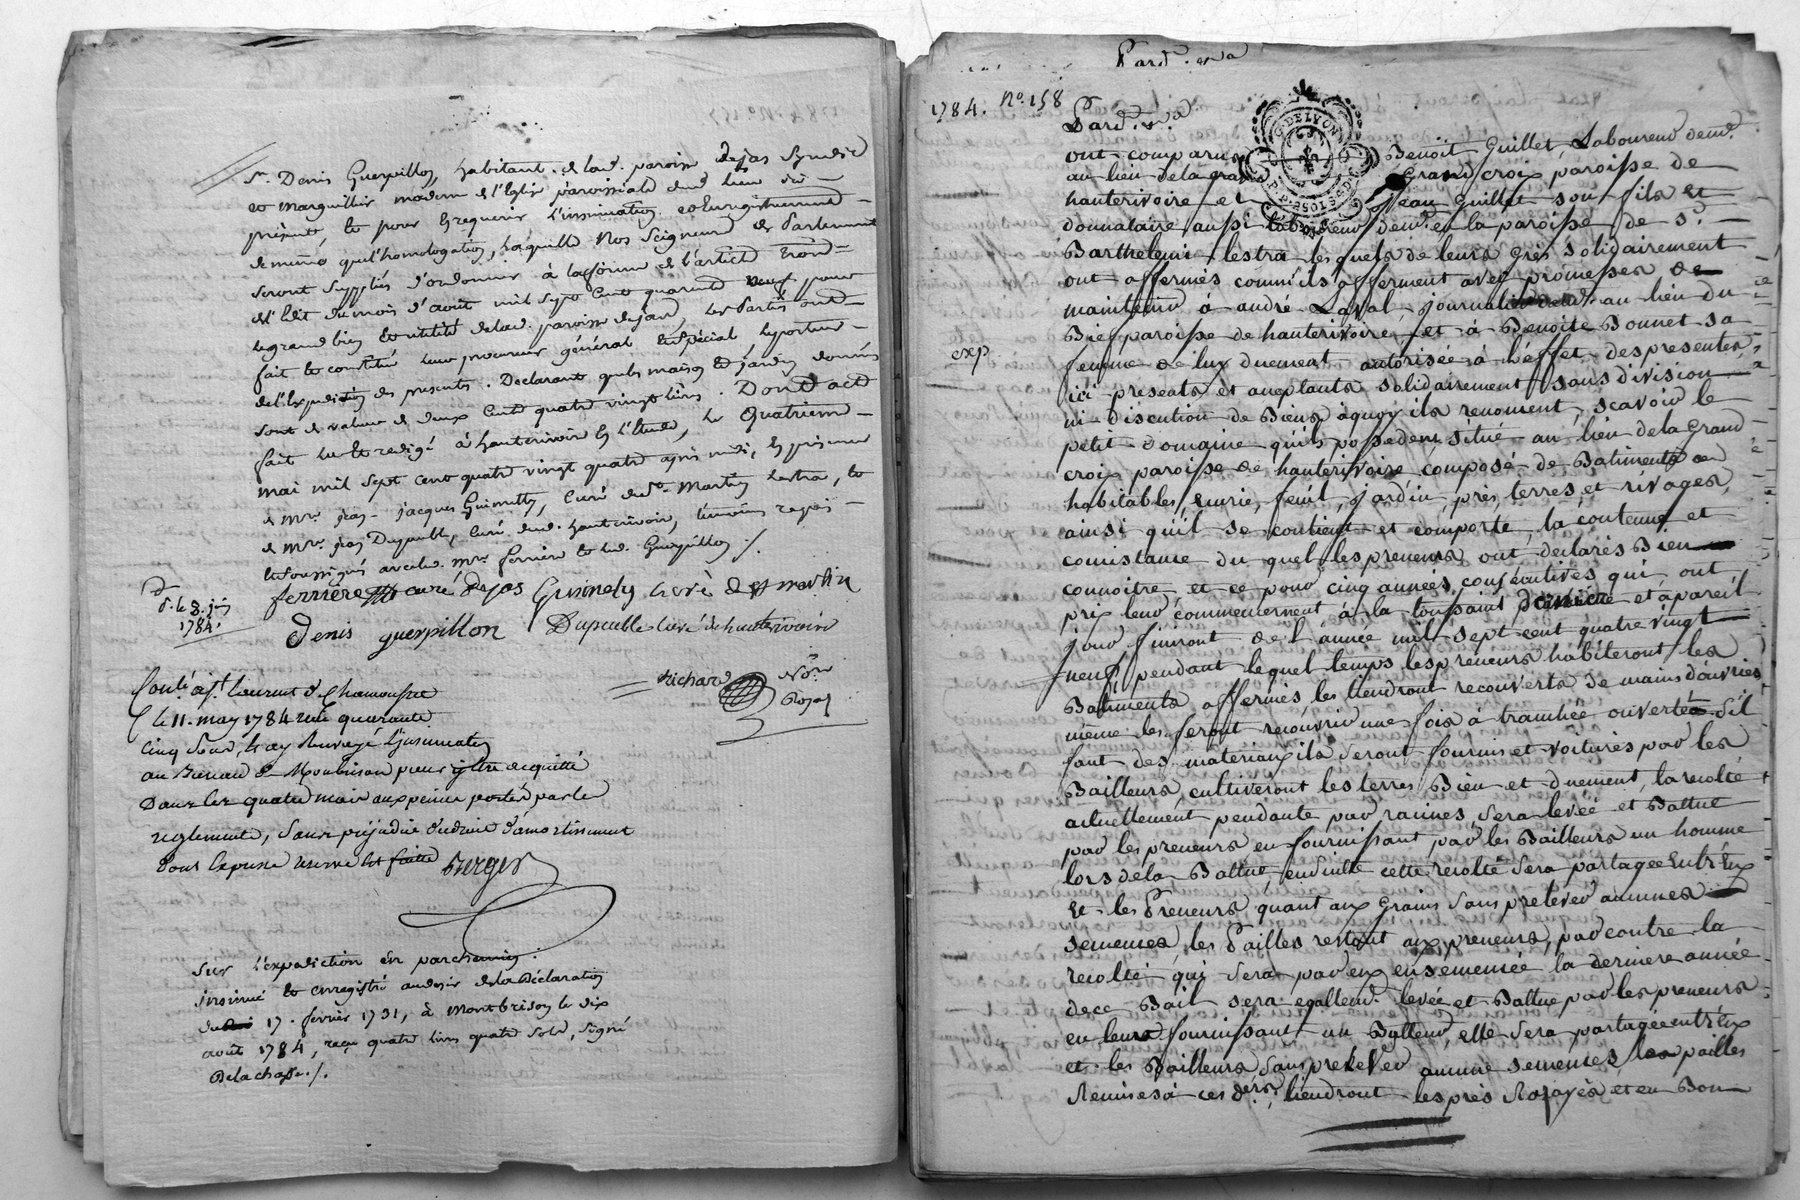 Sr. Denis Guerpillon, habitant de lad. paroisse dejas syndic
et marguillier moderne de l'Eglise paroissiale dud. lieu icy
présent, et pour requerir l'insinuation et enregistrement
de même que l'homologation, laquelle Nos Seigneurs de Parlement
seront suppliés d'ordonner à la forme de l'article
de l'Edit du mois d'août mil sept cent quarante neuf pour
le grand bien et utilité delad. paroisse dejas, les Parties ont
fait et constitué leur procureur général et spécial, le porteur
de l'expedition des presentes. Declarant que les maison et jardin donnés
sont de valeur de deux cents quatre vingt livres. Dont acte
fait lu et redigé à hauterivoire en l'Etude, le quatrieme
mai mil sept cent quatre vingt quatre après midi, en présence
de Mre. jean jacques Guimelly, curé de St. Martin lestra, et
de Mre. jean Dupeuble, curé dud. hauterivoire, temoins requis
et soussignés avec led. Mre. ferriere et led. Guerpillon ./.
ferriere curé dejas Guimely curé de st martin
D. le 8. juin
1784.
Denis guerpillon Dupeuble curé de hauterivoire
Richard Nore.
Royal
Contlé. à St. Laurent de Chamousset
le 11. may 1784 reçu quarante
cinq sous, et ay renvoyé l'insinuation
au Bureau de Montbrison pour y être acquitté
Dans les quatre mois aux peines portées par le
reglement, sans préjudice du droit d'amortissement
dont la reserve est faite Berger
Sur l'expedition en parchemin.
insinué et enregistré au desir de la Déclaration
du 17. fevrier 1731, à Montbrison le dix
août 1784, reçu quatre livres quatre sols, signé
Delachasse./.
Pard. evt
1784. No. 158
Pard. evt
G. DE LYON
ont comparus Benoit Guillet, Laboureur demt.
au lieu de la grand Grand croix paroisse de
hauterivoire et Jean Guillet son fils et
donnataire aussi laboureur demt. en la paroisse de St.
Barthelemi lestra lesquels de leurs grés solidairement
ont affermés comm'ils afferment avec promesses de
maintenir à andré Laval journalier demt. au lieu du
Bief paroisse de hauterivoire et à Benoite Bonnet sa
exp
femme de lui duement autorisée à l'effet des presentes
ici presents et aceptants solidairement sans division
ni discution de Biens àquoy ils renoncent, scavoir le
petit domaine qu'ils possedent situé au lieu dela Grand
croix paroisse de hauterivoire composé de Batiments
habitables, ecurie, fenil, jardin, près, terres, et rivages,
ainsi qu'il se contient et comporte, la contenue et
consistance du quel les preneurs ont declarés Bien
connoitre, et ce pour cinq années conséeutives qui ont
pris leur commencement à la toussaint derniere et à pareil
jour finiront de l'année mil sept cent quatre vingt
neuf, pendant lequel temps les preneurs habiteront les
Batiments affermés, les tiendront recouverts de mains d'ouvries
même les feront recouvrir une fois à tranchée ouverte, s'il
faut des materiaux ils seront fournis et voiturés par les
Bailleurs, cultiveront les terres Bien et duement, la recolte
actuellement pendante par racines, sera levée et Battue
par les preneurs en fournissant par les Bailleurs un homme
lors dela Battue, ensuite cette recolte sera partagée entr'Eux
Et les Preneurs, quant aux grains sans prelever aucunes
semences, les Pailles restant aux preneurs, par contre la
recolte qui sera par eux ensemencée la derniere année
dece Bail sera egallemt. levée et Battue par les preneurs
en leurs fournissant un Batteur, elle sera partagée entr'Eux
et les Bailleurs sans prelever aucune semences les pailles
Remises à ces ders., tiendront les près Rasoyés et en Bon